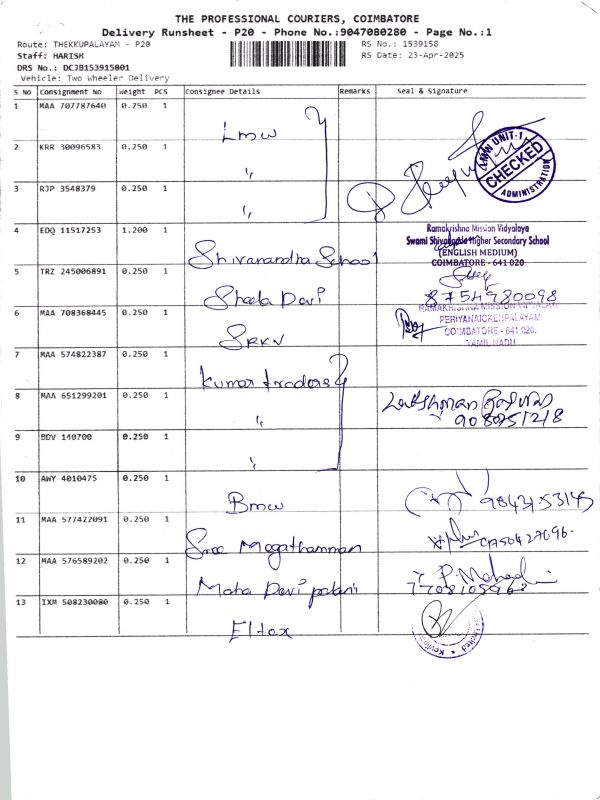 THE PROFESSIONAL COURIERS, COIMBATORE
Delivery Runsheet - P20 - Phone No.:9047080280 - Page No.:1
Route: THEKKUPALAYAM - P20
RS No.: 1539158
Staff: HARISH
RS Date: 23-Apr-2025
DRS No.: DCJB153915801
Vehicle: Two Wheeler Delivery
S No Consignment No Weight PCS Consignee Details Remarks Seal & Signature
1 MAA 707787640 0.250 1 Lmw
2 KRR 30096583 0.250 1 "
3 RJP 3548379 0.250 1 "
UNIT-1
CHECKED
ADMINISTRATION
4 EDQ 11517253 1.200 1 Shivanandha School
Ramakrishna Mission Vidyalaya
Swami Shivananda Higher Secondary School
(ENGLISH MEDIUM)
COIMBATORE - 641 020
5 TRZ 245006891 0.250 1 Sheela Devi
8754980098
6 MAA 708368445 0.250 1 SRKV
RAMAKRISHNA MISSION VIDYALAYA
PERIYANAICKENPALAYAM
COIMBATORE - 641 020.
TAMIL NADU
7 MAA 574822387 0.250 1 Kumar traders
8 MAA 651299201 0.250 1 "
9 BDV 140700 0.250 1 "
10 AWY 4010475 0.250 1 Bmw
11 MAA 577422091 0.250 1 Sree Magathamman
12 MAA 576589202 0.250 1 Maha Devi palani
13 IXM 508230080 0.250 1 Eltex
Limited